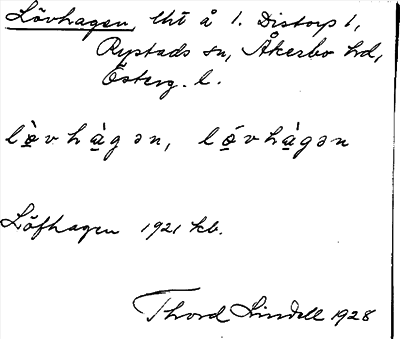 Lövhagen, lht å 1. Distorp 1,
Rystads sn, Åkerbo hd,
Österg. l.
lö̀vhàgən, lǿvhàgən
Löfhagen 1921 kb.
Thord Lindell 1928